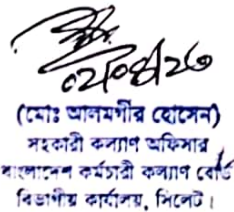 ০২/০৪/২৩
(মোঃ আলমগীর হোসেন)
সহকারী কল্যাণ অফিসার
বাংলাদেশ কর্মচারী কল্যাণ বোর্ড
বিভাগীয় কার্যালয়, সিলেট।